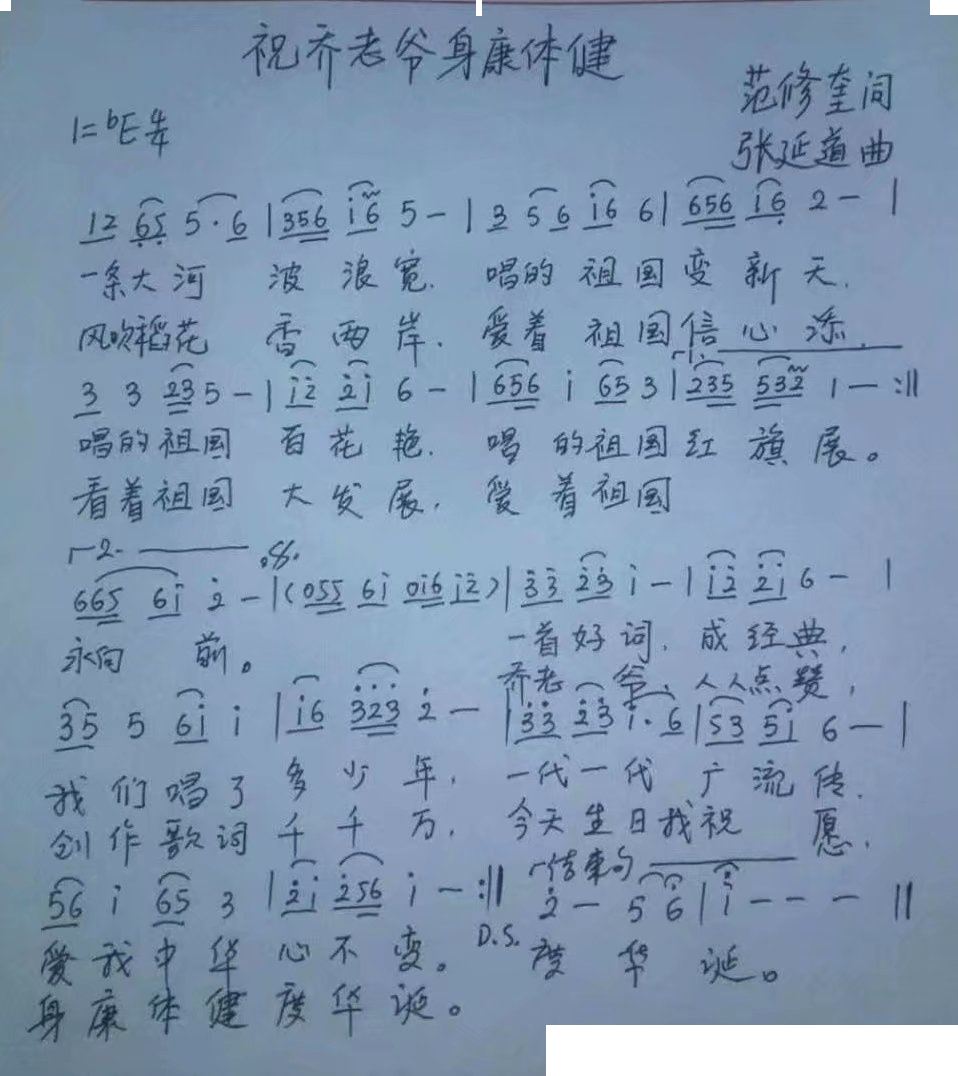 祝乔老爷身康体健
范修奎词
1=bE 4/4
张延道曲
12 65 5·6 | 356 i6 5 - | 3 56 i6 6 | 656 i6 2 - |
一条大河 波浪宽. 唱的祖国变新天.
风吹稻花 香两岸. 爱着祖国信心添.
3 3 23 5 - | i2 2i 6 - | 656 i 65 3 | 235 532 1 - :||
唱的祖国 百花艳. 唱的祖国红旗展。
看着祖国 大发展. 爱着祖国
2.
665 6i 2 - | (055 6i 0i6 i2) | 33 23 i - | i2 2i 6 - |
永向前。 一首好词. 成经典,
乔老爷、人人点赞,
35 5 6i i | i6 323 2 - | 33 23 i·6 | 53 5i 6 - |
我们唱了多少年, 一代一代广流传.
创作歌词千千万. 今天生日我祝愿,
结束句
56 i 65 3 | 2i 256 i - :|| 2 - 5 6 | i - - - ||
D.S.
爱我中华心不变。 度华诞。
身康体健度华诞。